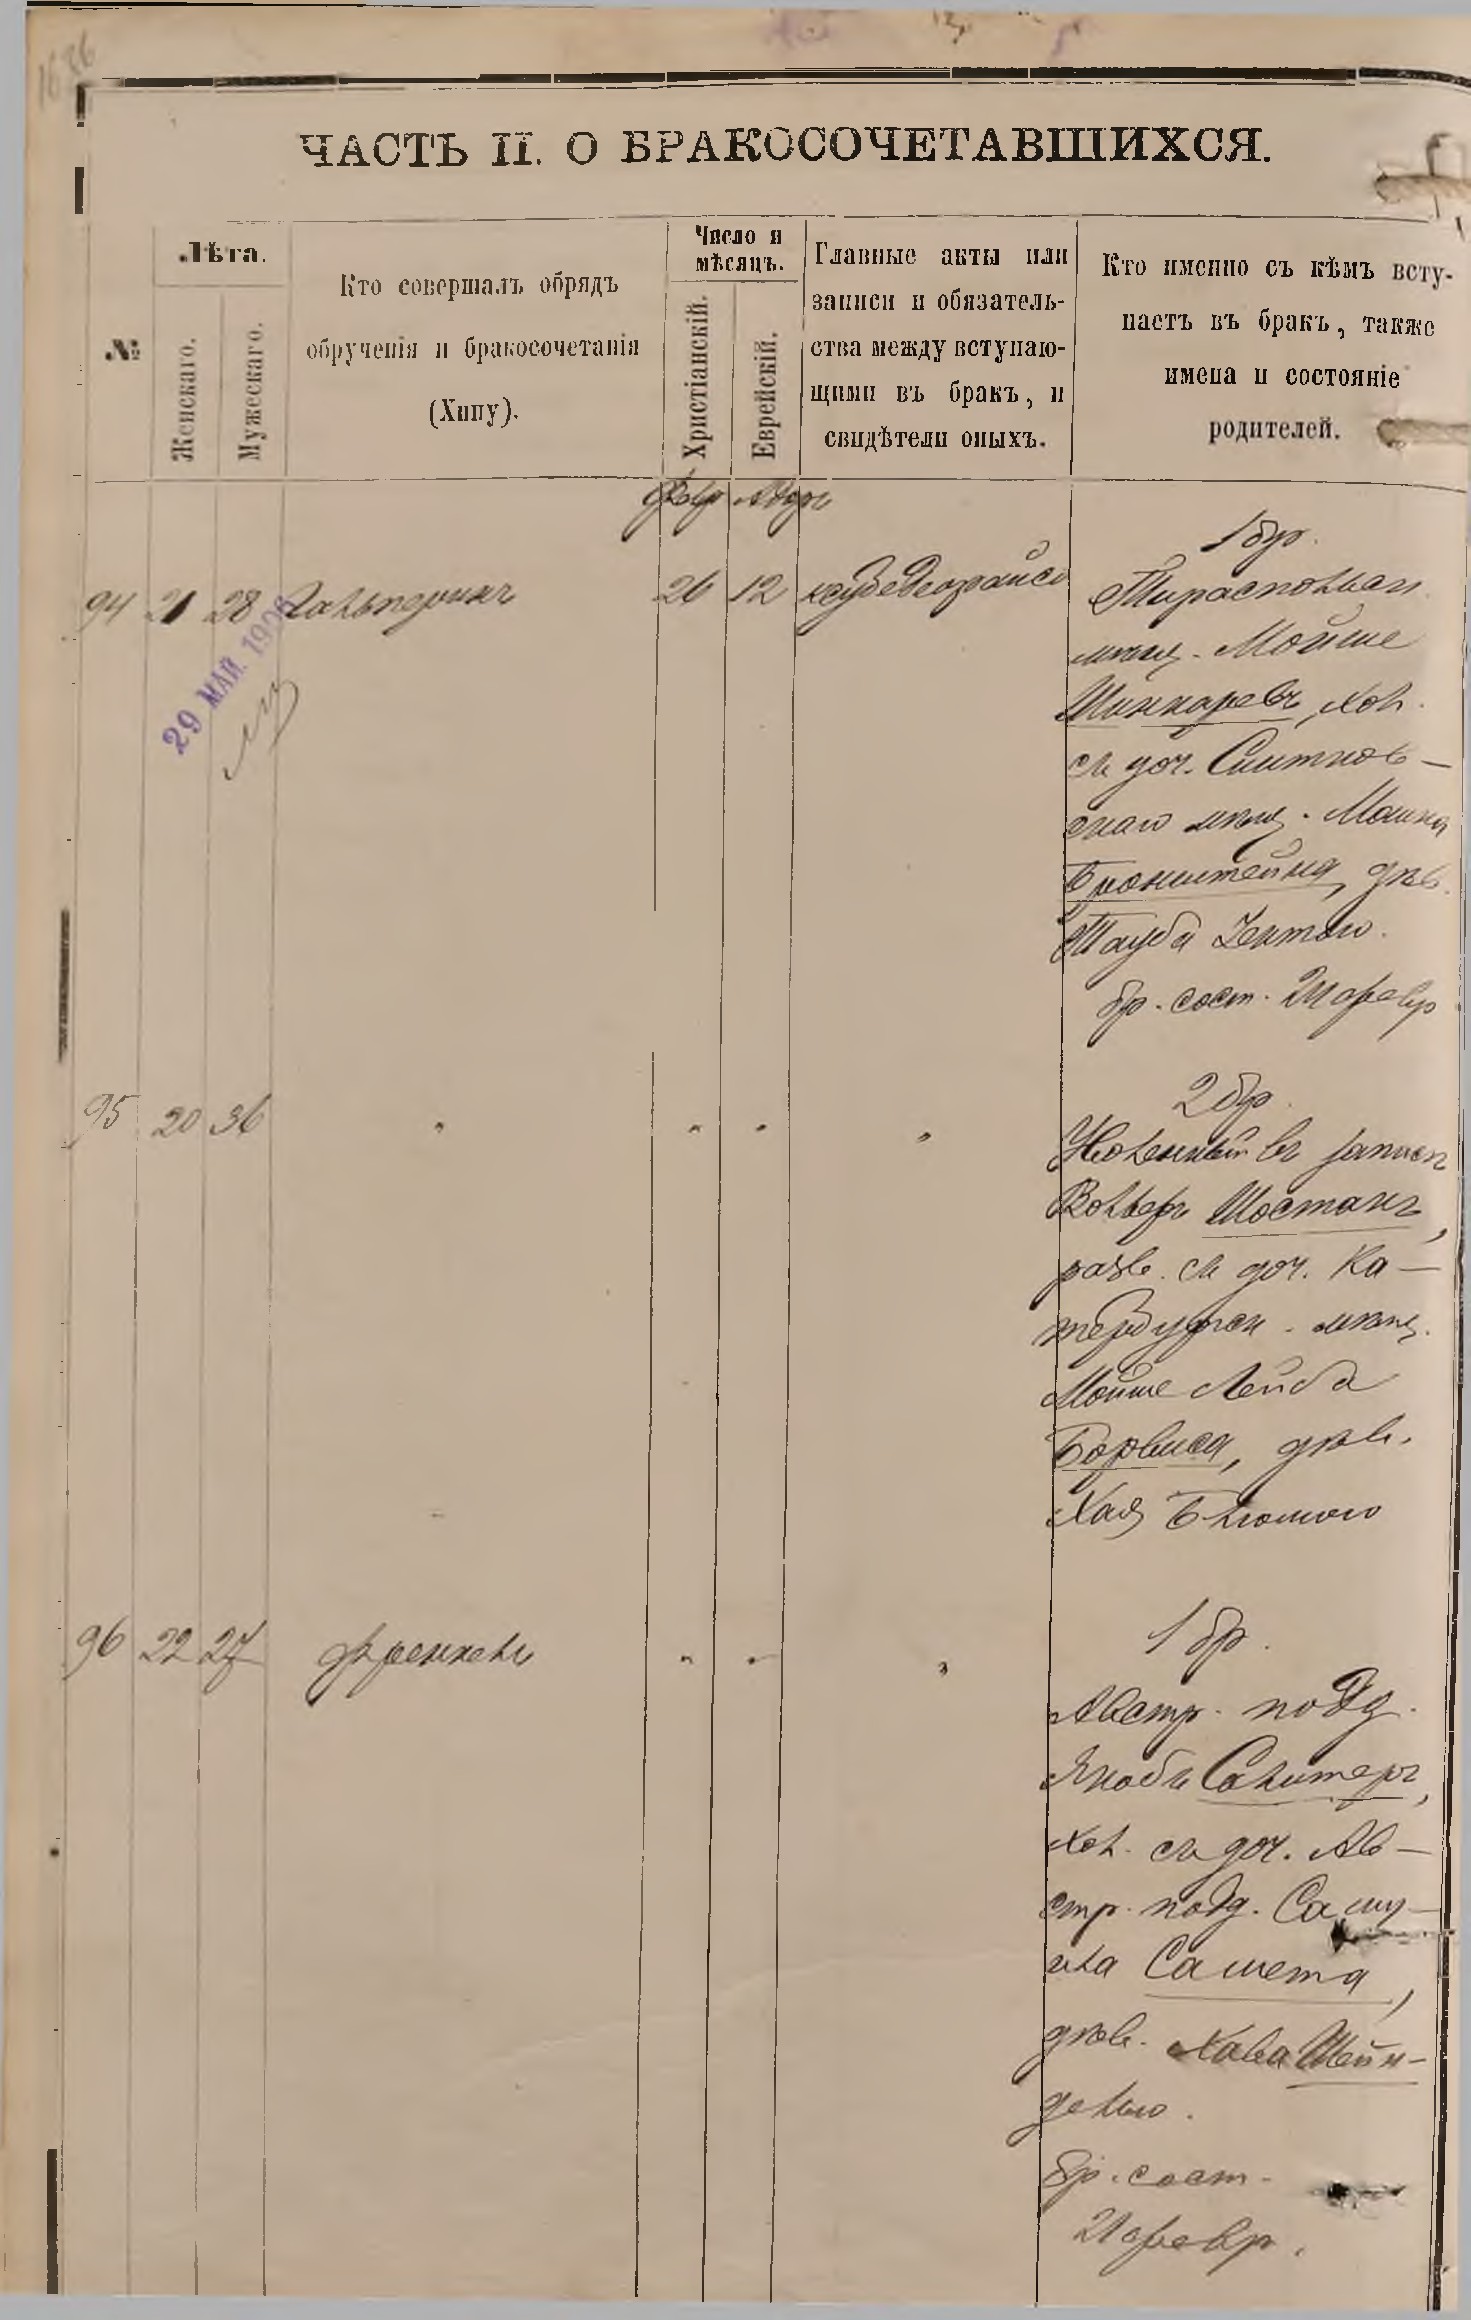 1626
ЧАСТЬ II. О БРАКОСОЧЕТАВШИХСЯ.
№
Лѣта.
Женскаго.
Мужескаго.
Кто совершалъ обрядъ
обрученія и бракосочетанія
(Хипу).
Число и
мѣсяцъ.
Христіанскій.
Еврейскій.
Главные акты или
записи и обязатель-
ства между вступаю-
щими въ бракъ, и
свидѣтели оныхъ.
Кто именно съ кѣмъ всту-
паетъ въ бракъ, также
имена и состояніе
родителей.
Февр Адаръ
94 21 28 Гальперинъ 26 12
29 МАЙ 190
1 бр.
Тираспольск.
мѣщ. Мойше
Шинкаревъ, хол.
съ доч. Смитков-
скаго мѣщ. Мошка
Бронштейна, дѣв.
Тауба Зентою.
бр. сост. 21 февр
95 20 36 " " " "
2 бр.
въ запасѣ
Вольфъ Шостакъ,
разв. съ доч. Ка-
тербургск. мѣщ.
Мойше Лейба
Борвиса, дѣв.
Хая Блюмою
96 22 27 Френкель " " "
1 бр.
Австр. подд.
Якобъ Салитеръ,
хол. съ доч. Ав-
стр. подд. Саму-
ила Самета,
дѣв. Хава Шейн-
делью.
бр. сост.
21 февр.